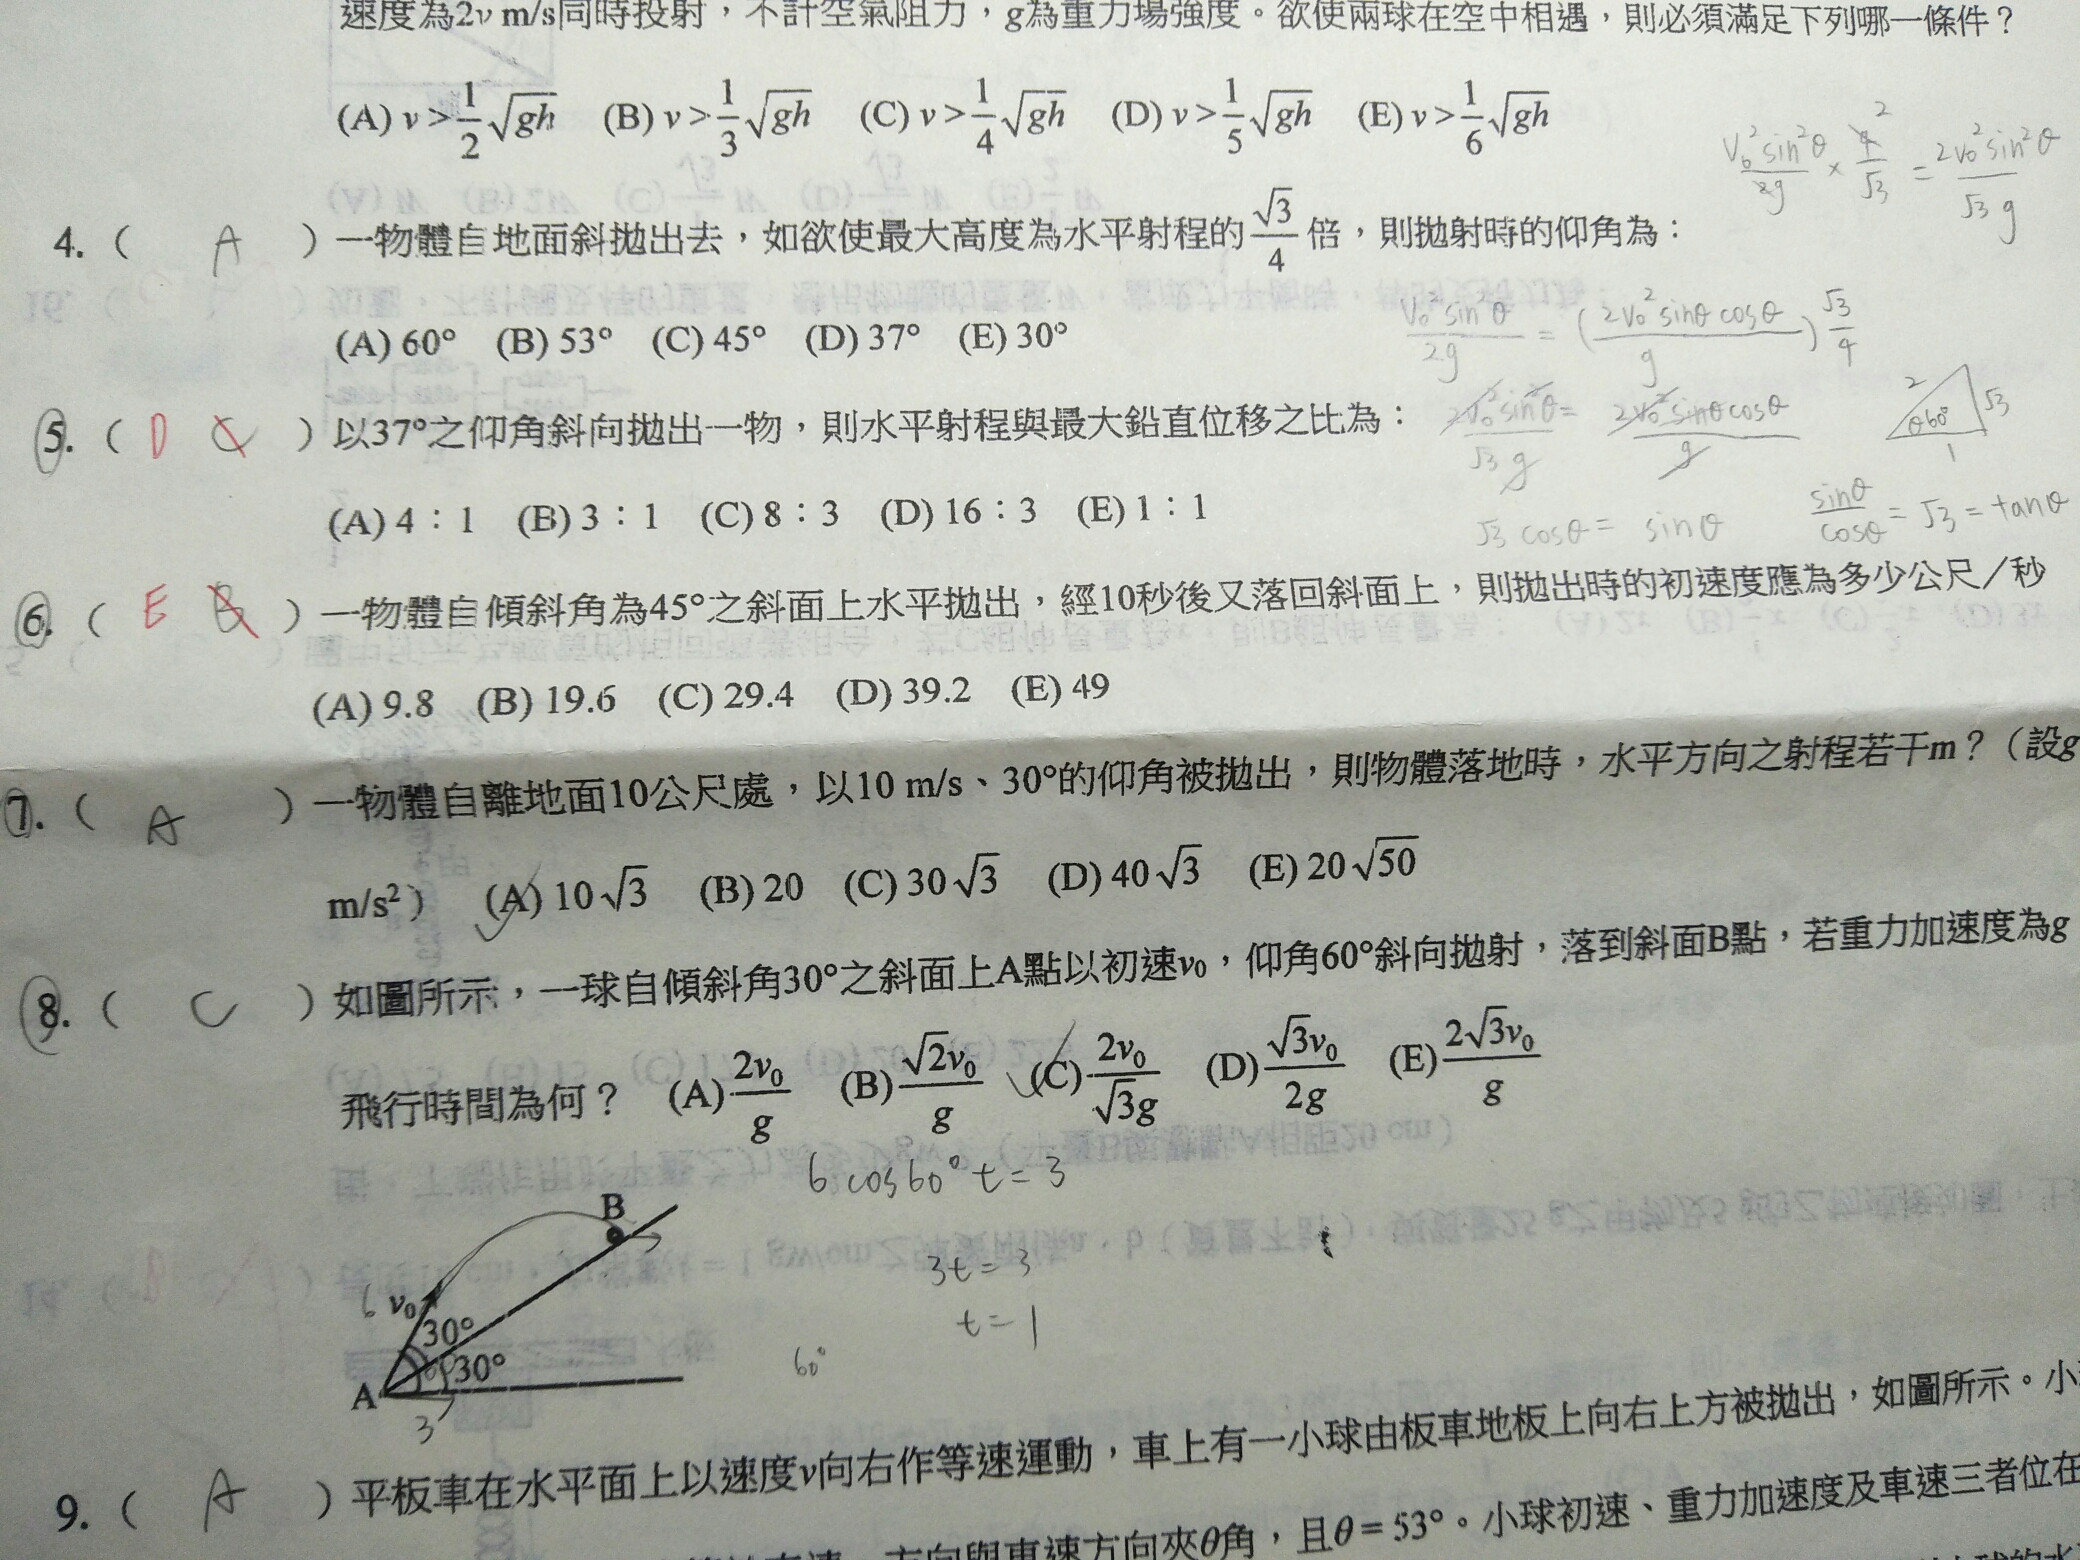 速度為2v m/s同時投射，不計空氣阻力，g為重力場強度。欲使兩球在空中相遇，則必須滿足下列哪一條件？
(A) v>1/2√gh (B) v>1/3√gh (C) v>1/4√gh (D) v>1/5√gh (E) v>1/6√gh
v₀²sin²θ/2g × 4/√3 = 2v₀²sin²θ/√3g
4. ( A ) 一物體自地面斜拋出去，如欲使最大高度為水平射程的√3/4倍，則拋射時的仰角為：
(A) 60° (B) 53° (C) 45° (D) 37° (E) 30°
v₀²sin²θ/2g = (2v₀²sinθcosθ/g)√3/4
5. ( D C ) 以37°之仰角斜向拋出一物，則水平射程與最大鉛直位移之比為：
2v₀²sin²θ/√3g = 2v₀²sinθcosθ/g
2 √3 θ60° 1
(A) 4：1 (B) 3：1 (C) 8：3 (D) 16：3 (E) 1：1
√3 cosθ = sinθ
sinθ/cosθ = √3 = tanθ
6. ( E B ) 一物體自傾斜角為45°之斜面上水平拋出，經10秒後又落回斜面上，則拋出時的初速度應為多少公尺／秒
(A) 9.8 (B) 19.6 (C) 29.4 (D) 39.2 (E) 49
7. ( A ) 一物體自離地面10公尺處，以10 m/s、30°的仰角被拋出，則物體落地時，水平方向之射程若干m？（設g
m/s²） (A) 10√3 (B) 20 (C) 30√3 (D) 40√3 (E) 20√50
8. ( C ) 如圖所示，一球自傾斜角30°之斜面上A點以初速v₀，仰角60°斜向拋射，落到斜面B點，若重力加速度為g
飛行時間為何？ (A) 2v₀/g (B) √2v₀/g (C) 2v₀/√3g (D) √3v₀/2g (E) 2√3v₀/g
6 cos60° t = 3
B
3t = 3
6 v₀
30°
t = 1
30°
60°
A
3
9. ( A ) 平板車在水平面上以速度v向右作等速運動，車上有一小球由板車地板上向右上方被拋出，如圖所示。小
方向與車速方向夾θ角，且θ = 53°。小球初速、重力加速度及車速三者位在